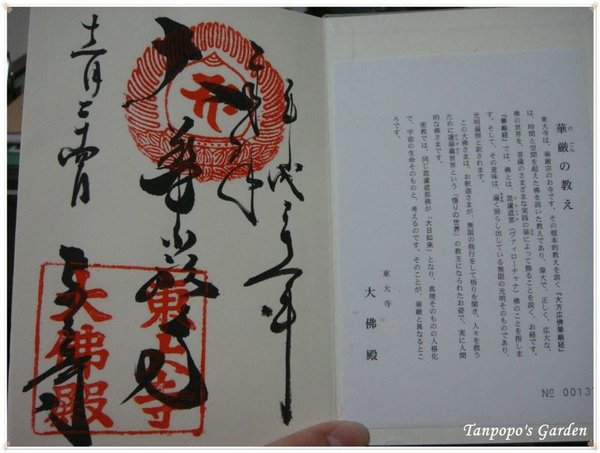 華厳の教え
東大寺は、華厳宗のお寺です。その根本的教えを説く『大方広佛華厳経』
は、時間と空間を超えた佛を説いた教えであり、偉大で、正しく、広大な、
佛の世界を、菩薩のさまざまな実践の華によって飾ることを説く、お経です。
『華厳経』では、佛とは、毘盧遮那(ヴァイローチャナ)佛のことを指しま
す。そして、その意味は、遍く照らし出している無限の光明そのものであり、
光明遍照と訳されます。
この大佛さまは、お釈迦さまが、無限の修行をして悟りを開き、人々を救う
ために蓮華蔵世界という「悟りの世界」の教主になられたお姿で、実に人間
的な佛さまです。
密教では、同じ毘盧遮那佛が「大日如来」となり、真理そのものの人格化
で、宇宙の生命そのものと、考えるのです。そのことが、華厳と異なるとこ
ろです。
東大寺
大佛殿
№ 0013
東大寺
大佛殿
Tanpopo's Garden